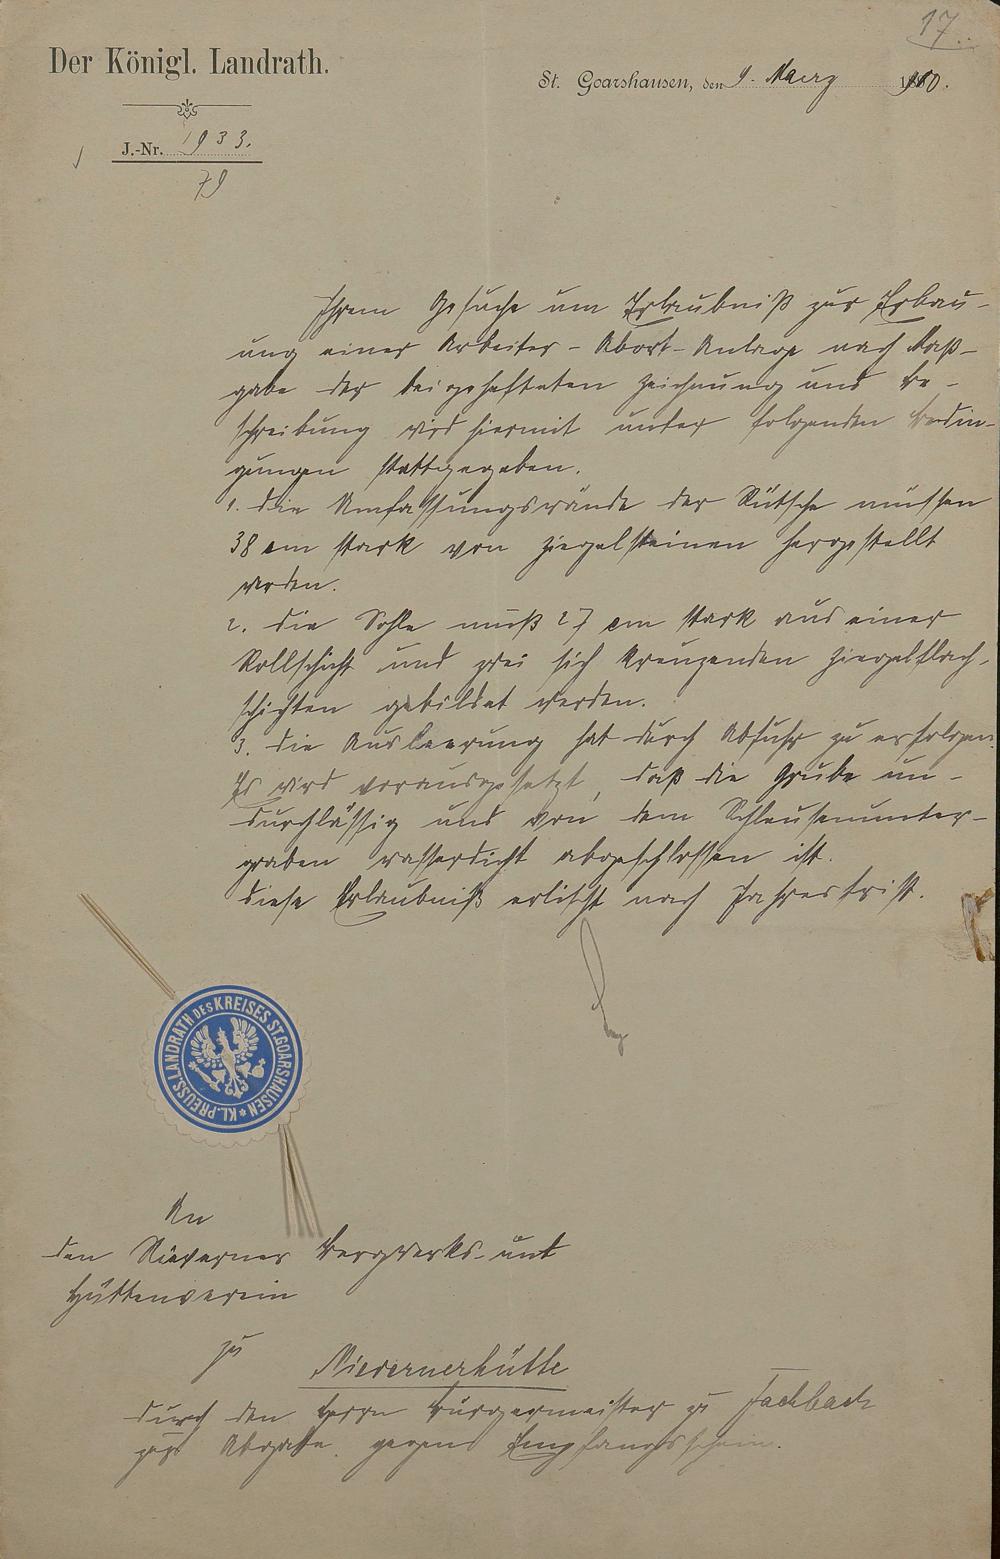 17.
Der Königl. Landrath.
St. Goarshausen, den 9. Maerz 1880.
J.-Nr. 1933.
79
Ihrem Gesuche um Erlaubniß zur Erbau-
ung einer Arbeiter-Abort-Anlage nach Maß-
gabe der beigehefteten Zeichnung und Be-
schreibung wird hiermit unter folgenden Bedin-
gungen stattgegeben.
1. die Umfassungswände der Rütsche müssen
38 cm stark von Ziegelsteinen hergestellt
werden.
2. die Sohle muß 27 cm stark aus einer
Rollschicht und zwei sich kreuzenden Ziegelflach-
schichten gebildet werden.
3. die Ausleerung hat durch Abfuhr zu erfolgen.
Es wird vorausgesetzt, daß die Grube un-
durchlässig und von dem Schleusenunter-
graben wasserdicht abgeschlossen ist.
diese Erlaubniß erlischt nach Jahresfrist.
KL. PREUSS. LANDRATH DES KREISES ST. GOARSHAUSEN *
An
den Nieverner Bergwerks- und
Hüttenverein
zu Nievernerhütte
durch den Herrn Bürgermeister zu Fachbach
gegen Empfangsschein.